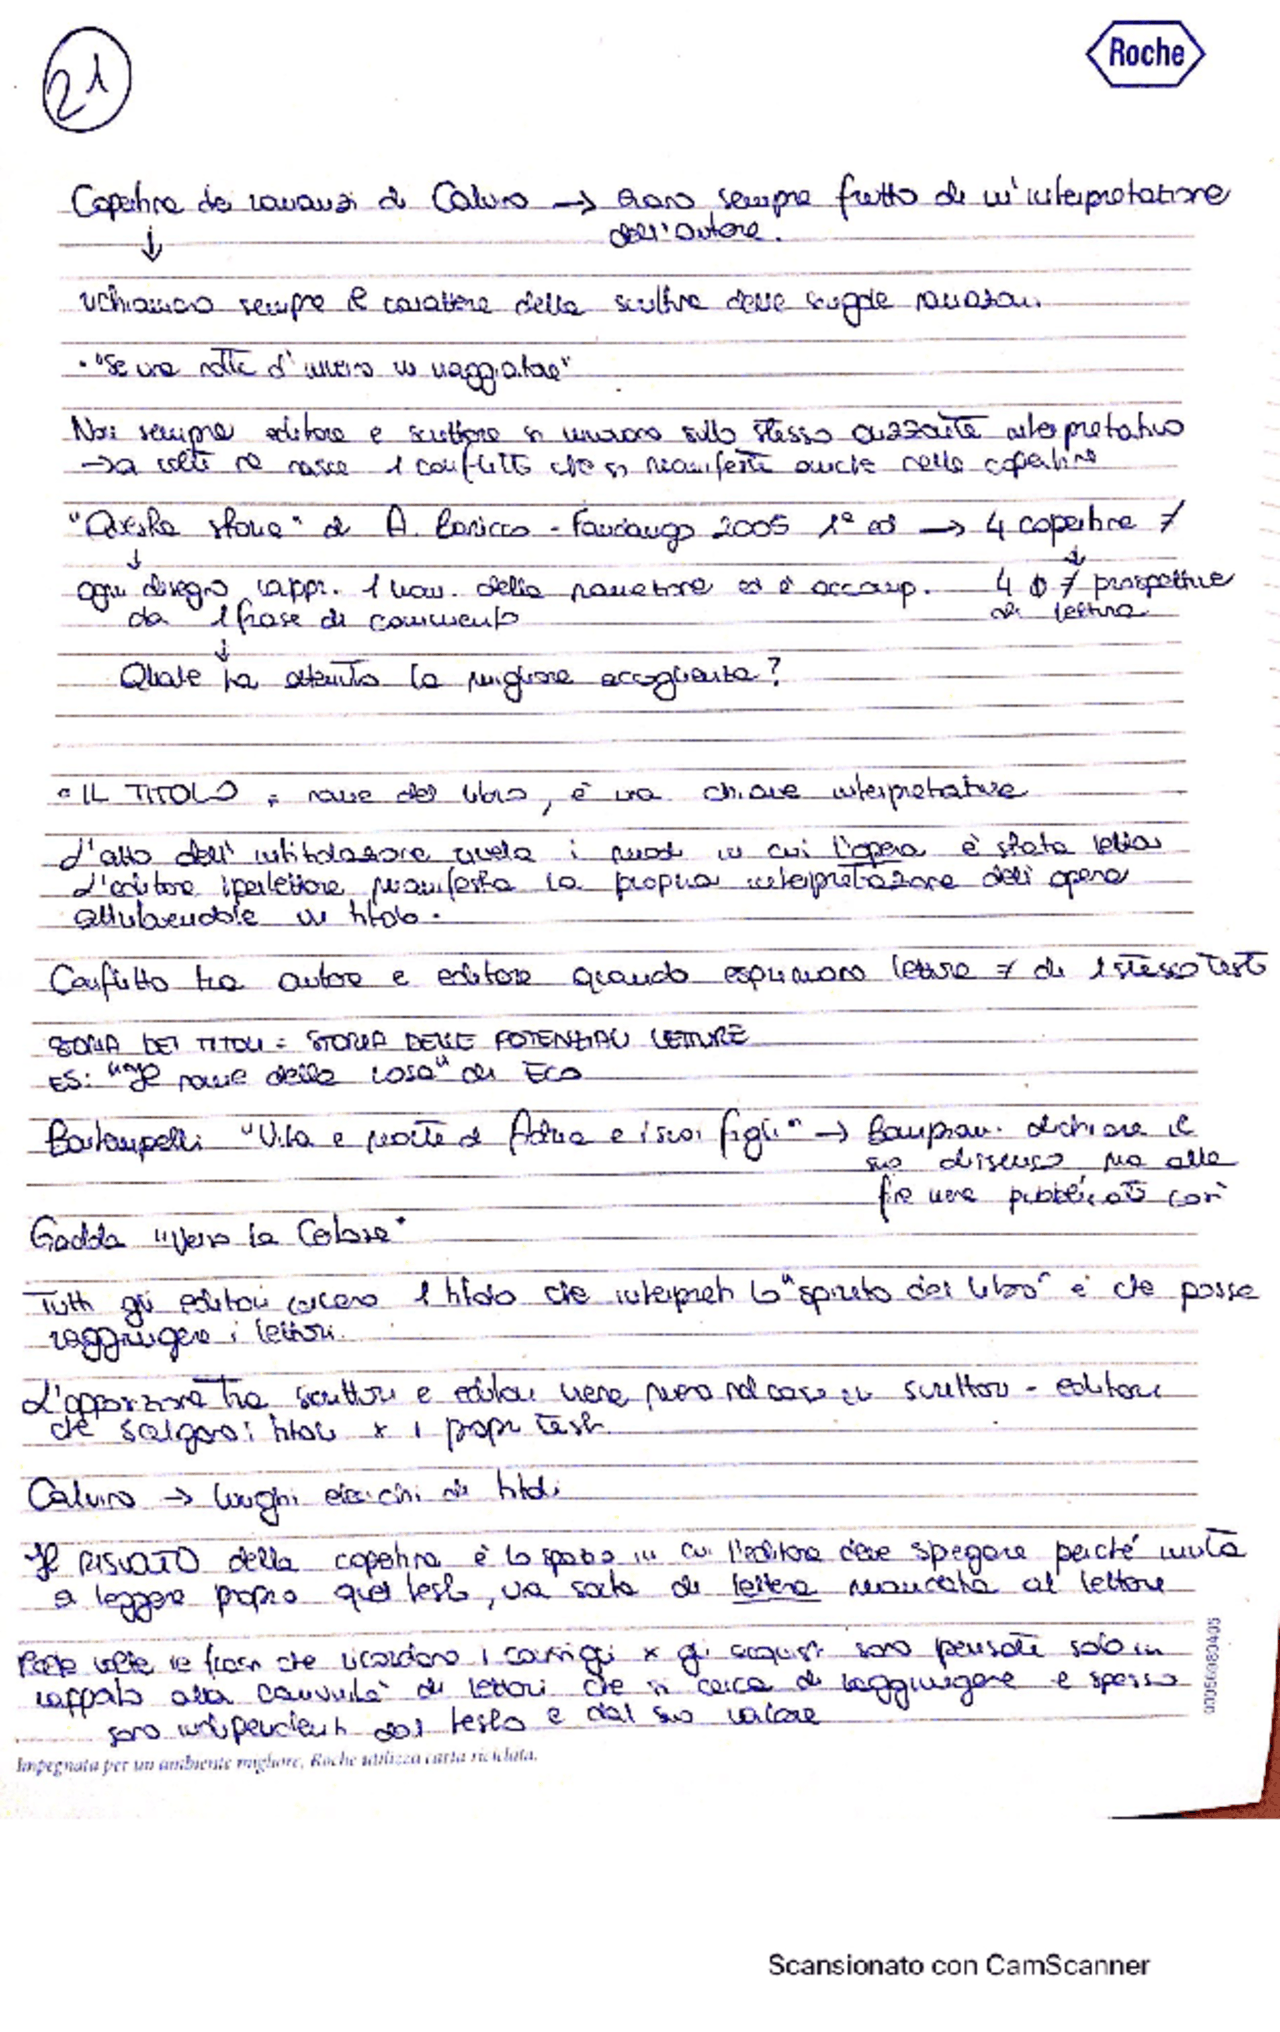 21
Roche
Copertine dei romanzi di Calvino → erano sempre frutto di un'interpretazione
dell'autore.
↓
richiamano sempre il carattere della scrittura delle singole narrazioni
• "Se una notte d'inverno un viaggiatore"
Non sempre editore e scrittore si muovono sullo stesso orizzonte interpretativo
→ a volte ne nasce 1 conflitto che si manifesta anche nelle copertine
"Questa storia" di A. Baricco - Fandango 2005 1ª ed → 4 copertine ≠
↓ ↓
ogni disegno rappr. 1 mom. della narrazione ed è accomp. 4 ≠ prospettive
da 1 frase di commento di lettura
↓
Quale ha ottenuto la migliore accoglienza?
• IL TITOLO = nome del libro, è una chiave interpretativa
L'atto dell'intitolazione rivela i modi in cui l'opera è stata letta
L'editore iperlettore manifesta la propria interpretazione dell'opera
attribuendole un titolo.
Conflitto tra autore e editore quando esprimono letture ≠ di 1 stesso testo
STORIA DEI TITOLI = STORIA DELLE POTENZIALI LETTURE
ES: "Il nome della rosa" di Eco
Bontempelli "Vita e morte di Adria e i suoi figli" → Bompiani dichiara il
suo dissenso ma alla
fine viene pubblicato così
Gadda "Verso la Certosa"
Tutti gli editori cercano 1 titolo che interpreti lo "spirito del libro" e che possa
raggiungere i lettori.
L'opposizione tra scrittori e editori viene meno nel caso di scrittori - editori
che scelgono i titoli x i propri testi.
Calvino → lunghi elenchi di titoli
Il RISVOLTO della copertina è lo spazio in cui l'editore deve spiegare perché invita
a leggere proprio quel testo, una sorta di lettera mancata al lettore
volte le frasi che ricordano i consigli x gli acquisti sono pensate solo in
rapporto alla comunità di lettori che si cerca di raggiungere e spesso
sono indipendenti dal testo e dal suo valore
Impegnata per un ambiente migliore, Roche utilizza carta riciclata.
Scansionato con CamScanner